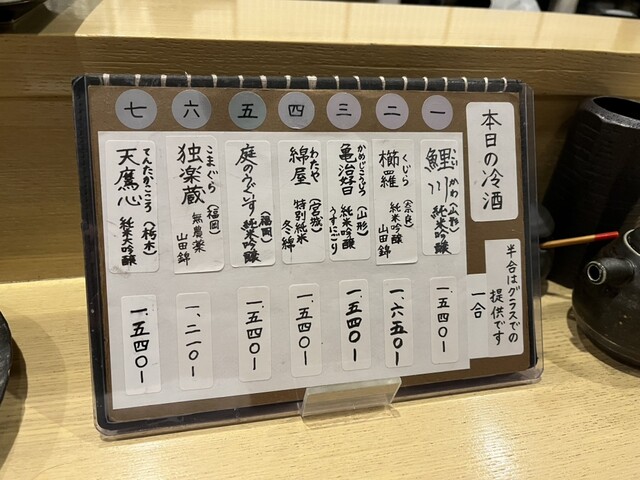 本日の冷酒
半合はグラスでの
提供です
一合
一
こいかわ
鯉川(山形)
純米吟醸
一、五四〇ー
二
くじら
櫛羅(奈良)
純米吟醸
山田錦
一、六五〇ー
三
かめじこうじつ
亀治好日(山形)
純米吟醸
うすにごり
一、五四〇ー
四
わたや
綿屋(宮城)
特別純米
冬綿
一、五四〇ー
五
庭のうぐいす(福岡)
純米大吟醸
一、五四〇ー
六
こまぐら
独楽蔵(福岡)
無農薬
山田錦
一、二一〇ー
七
てんたかこころ
天鷹心(栃木)
純米大吟醸
一、五四〇ー